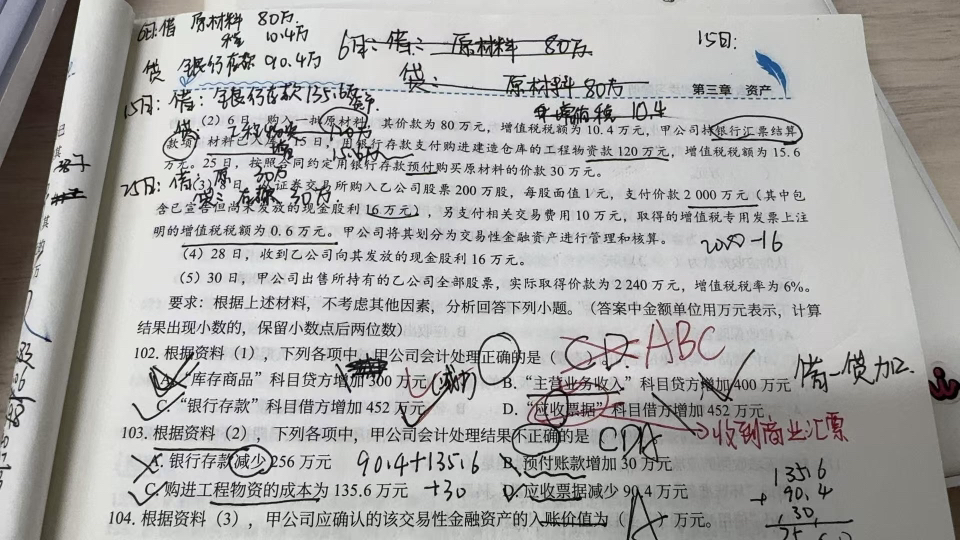 6日:借 原材料 80万
10.4万
贷 银行存款 90.4万
6日:借:原材料 80万
贷:原材料 80万
15日:
第三章 资产
15日:借:银行存款135.6万
(2)6日,购入一批原材料,其价款为80万元,增值税税额为10.4万元,甲公司持银行汇票结算
款项,材料已入库。15日,用银行存款支付购进建造仓库的工程物资款120万元,增值税税额为15.6
万元。25日,按照合同约定用银行存款预付购买原材料的价款30万元。
25日:借:原 30万
贷:存款 30万
(3)8日,从证券交易所购入乙公司股票200万股,每股面值1元,支付价款2 000万元(其中包
含已宣告但尚未发放的现金股利16万元),另支付相关交易费用10万元,取得的增值税专用发票上注
明的增值税税额为0.6万元。甲公司将其划分为交易性金融资产进行管理和核算。
2000-16
(4)28日,收到乙公司向其发放的现金股利16万元。
(5)30日,甲公司出售所持有的乙公司全部股票,实际取得价款为2 240万元,增值税税率为6%。
要求:根据上述材料,不考虑其他因素,分析回答下列小题。(答案中金额单位用万元表示,计算
结果出现小数的,保留小数点后两位数)
102. 根据资料(1),下列各项中,甲公司会计处理正确的是( CD ABC
A. “库存商品”科目贷方增加300万元(减少) B. “主营业务收入”科目贷方增加400万元
借一贷加
C. “银行存款”科目借方增加452万元 D. “应收票据”科目借方增加452万元
收到商业汇票
103. 根据资料(2),下列各项中,甲公司会计处理结果不正确的是 CDA
A. 银行存款减少256万元 90.4+135.6 B. 预付账款增加30万元
+30
C. 购进工程物资的成本为135.6万元 D. 应收票据减少90.4万元
135.6
+ 90.4
30
104. 根据资料(3),甲公司应确认的该交易性金融资产的入账价值为( A )万元。